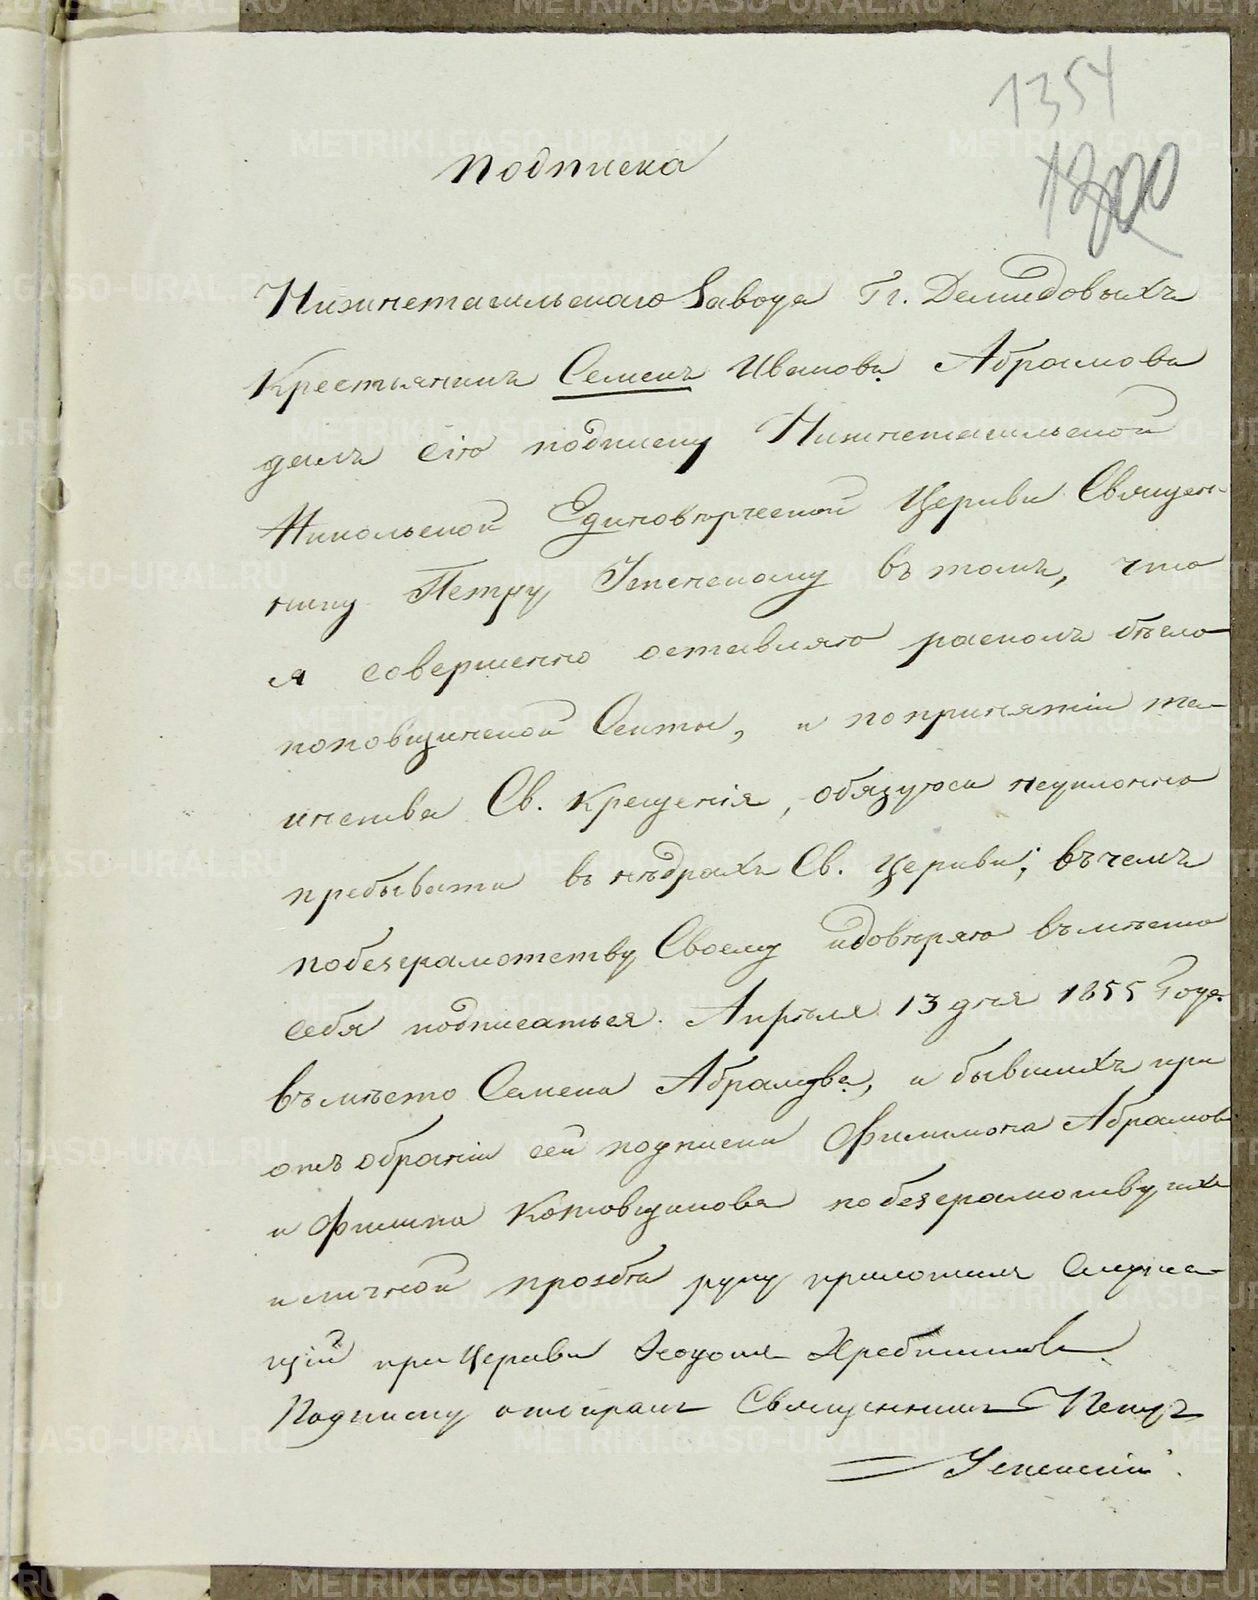 1354
1300
Подписка
Нижнетагильскаго Завода Гг. Демидовыхъ
Крестьянинъ Семенъ Ивановъ Абрамовъ
далъ сiю подписку Нижнетагильской
Никольской Единоверческой Церкви Священ-
нику Петру Успенскому въ томъ, что
я совершенно оставляю расколъ безпо
поповщинской Секты, и по принятiи та-
инства Св. Крещенiя, обязуюсь неуклонно
пребывать въ нѣдрахъ Св. Церкви; въ чемъ
по безграмотству Своему и довѣряю вмѣсто
себя подписаться. Апрѣля 13 дня 1855 Года.
Въмѣсто Семена Абрамова, и бывшихъ при
отъобранiи сей подписки Филимона Абрамова
и Филипа Котовщикова по безграмотству ихъ
и личной прозбѣ руку приложилъ Служа-
щiй при Церкви Хребтиковъ
Подписку отобралъ Священникъ Петръ
Успенскiй.
METRIKI.GASO-URAL.RU